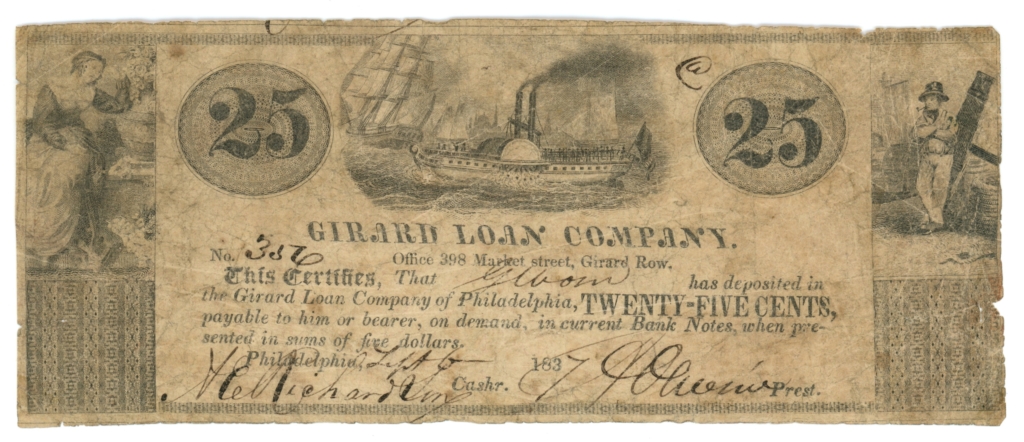 25 25
GIRARD LOAN COMPANY.
No. 356 Office 398 Market street, Girard Row.
This Certifies, That has deposited in
the Girard Loan Company of Philadelphia, TWENTY-FIVE CENTS,
payable to him or bearer, on demand, in current Bank Notes, when pre-
sented in sums of five dollars.
Philadelphia, 1837
Cashr. Prest.